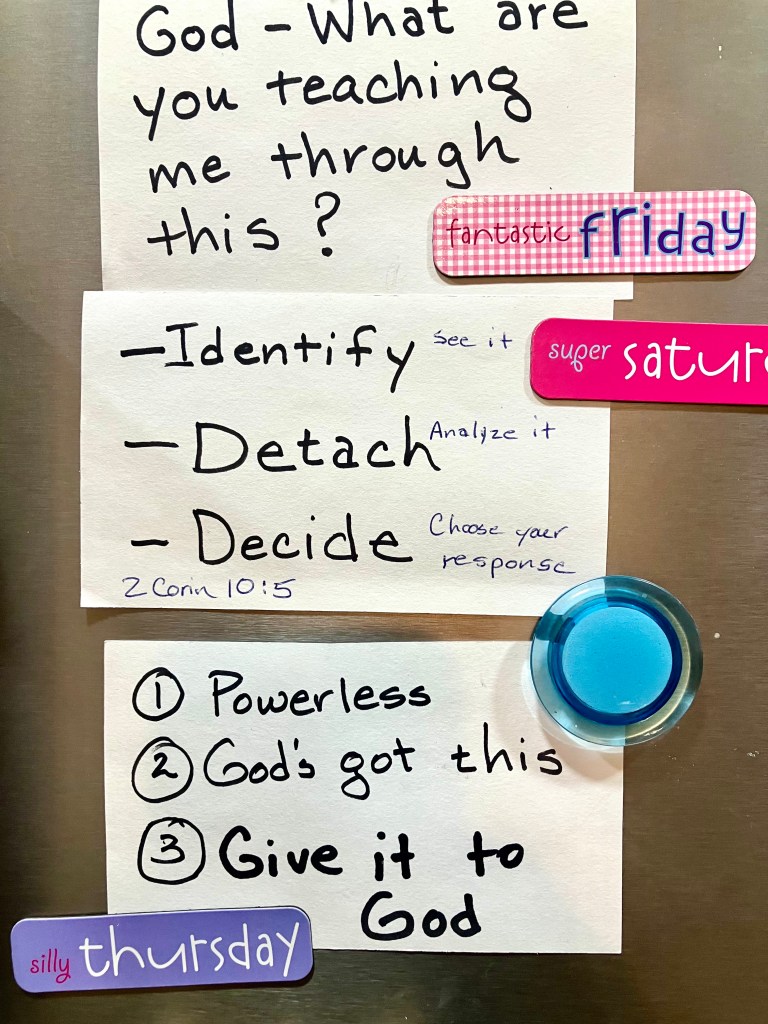 God - What are
you teaching
me through
this?
fantastic friday
- Identify see it
super satur
- Detach Analyze it
- Decide Choose your
response
2 Corin 10:5
1 Powerless
2 God's got this
3 Give it to
God
silly thursday